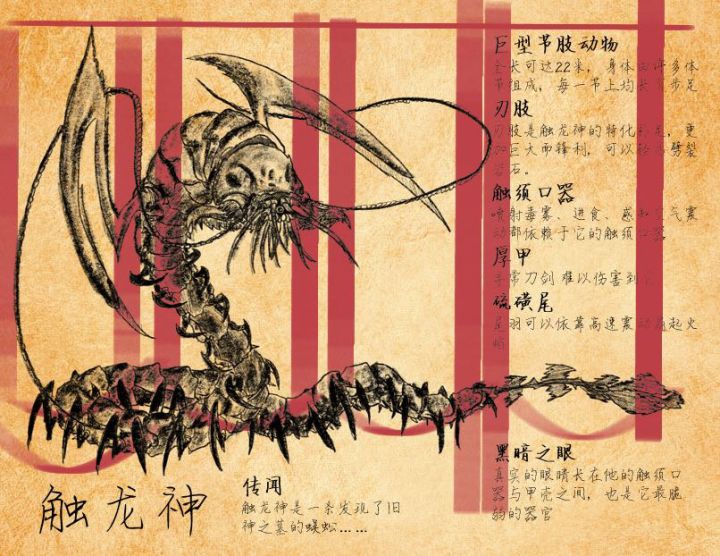 巨型节肢动物
全长可达22米，身体由许多体
节组成，每一节上均长有步足
刃肢
刃肢是触龙神的特化步足，更
加巨大而锋利，可以轻易劈裂
岩石。
触须口器
喷射毒雾、进食、感知空气震
动都依赖于它的触须口器
厚甲
寻常刀剑难以伤害到
硫磺尾
尾羽可以依靠高速震动扇起火
黑暗之眼
真实的眼睛长在他的触须口
器与甲壳之间，也是它最脆
弱的器官
传闻
触龙神是一条发现了旧
神之墓的蜈蚣……
触龙神